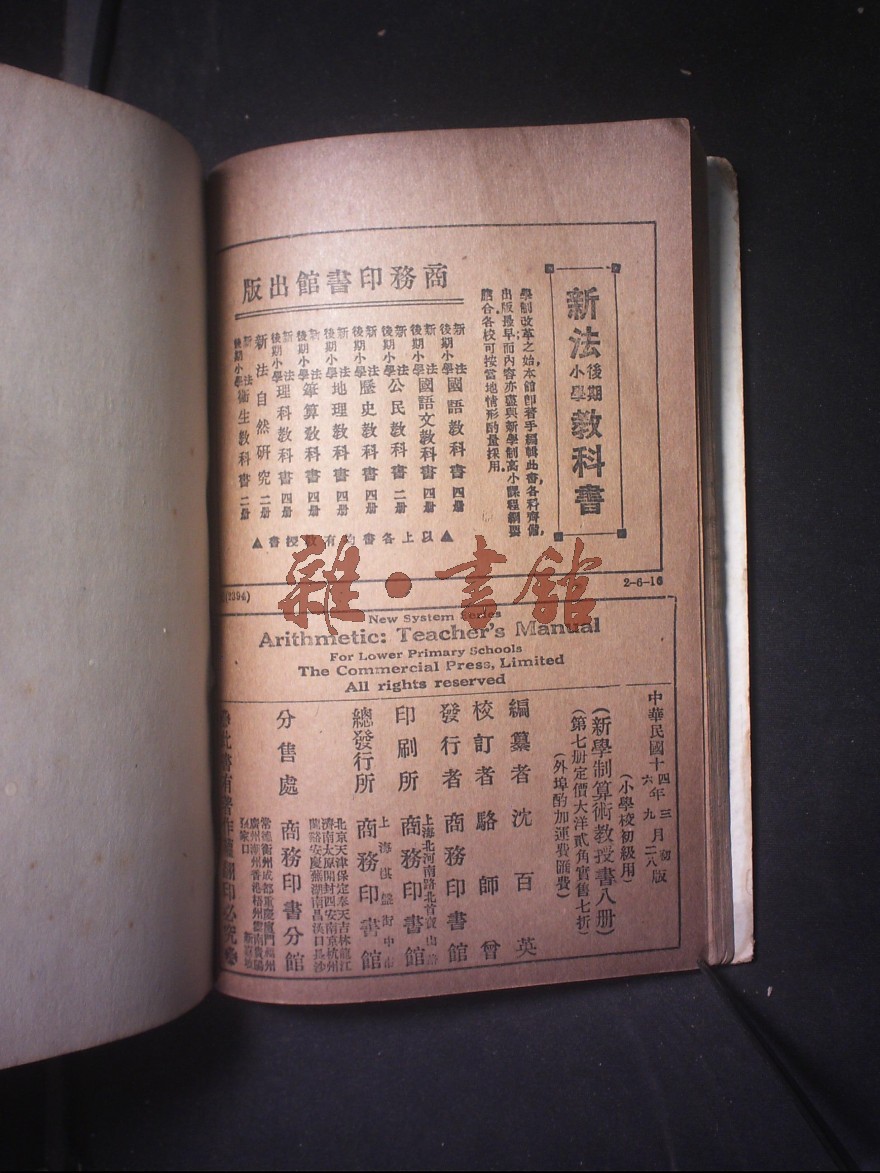 新法後期小學教科書
學制改革之始,本館卽著手編輯此書,各科齊備,
出版最早,而內容亦盡與新學制高小課程綱要
脗合,各校可按當地情形酌量採用。
商務印書館出版
新法後期小學國語教科書 四册
新法後期小學國語文教科書 四册
新法後期小學公民教科書 二册
新法後期小學歷史教科書 四册
新法後期小學地理教科書 四册
新法後期小學筆算教科書 四册
新法後期小學理科教科書 四册
新法自然研究 二册
新法後期小學衞生教科書 二册
▲以上各書均有教授書▲
(2394)
2-6-16
New System Series
Arithmetic: Teacher's Manual
For Lower Primary Schools
The Commercial Press, Limited
All rights reserved
中華民國十四年三月初版
六年九月二八版
(小學校初級用)
(新學制算術教授書八册)
(第七册定價大洋貳角實售七折)
(外埠酌加運費匯費)
編纂者 沈百英
校訂者 駱師曾
發行者 商務印書館
印刷所 上海北河南路北首寶山路 商務印書館
總發行所 上海棋盤街中市 商務印書館
分售處 商務印書分館
北京天津保定奉天吉林龍江
濟南太原開封西安南京杭州
蘭谿安慶蕪湖南昌漢口長沙
常德衡州成都重慶廈門福州
廣州潮州香港梧州雲南貴陽
張家口 新嘉坡
此書有著作權翻印必究
雜·書館